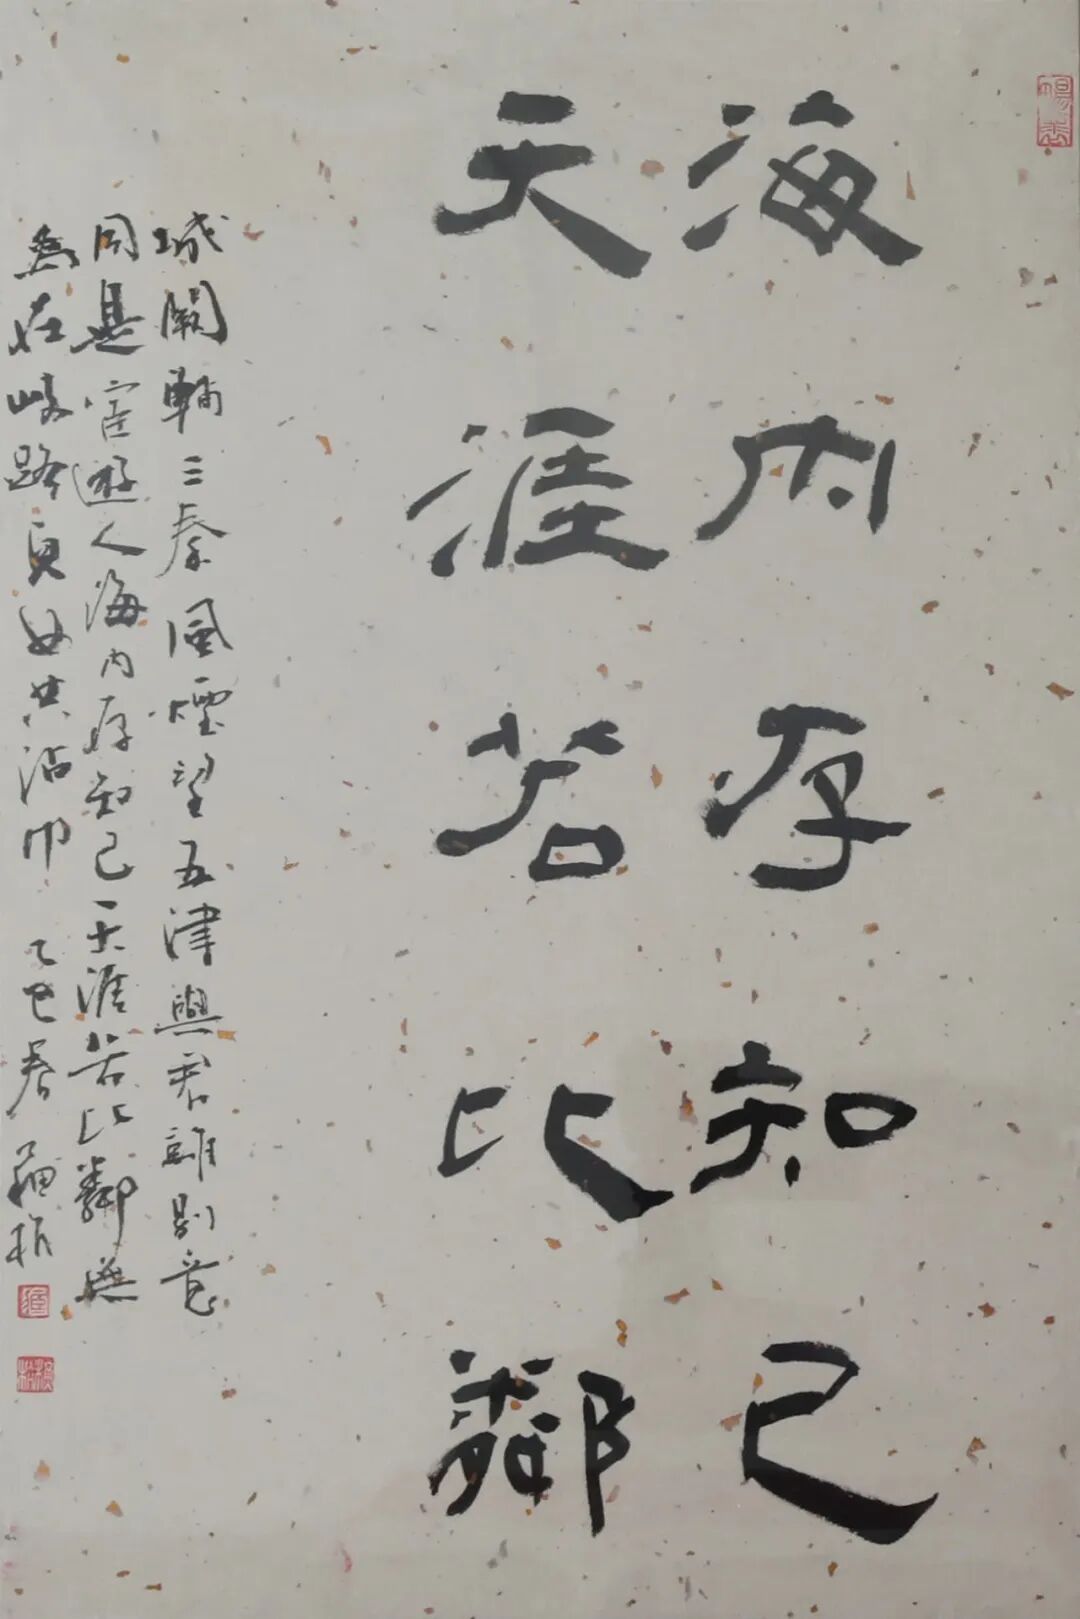 海内存知己
天涯若比鄰
城闕輔三秦風煙望五津與君離別意
同是宦遊人海内存知己天涯若比鄰無
為在岐路兒女共沾巾 乙巳春